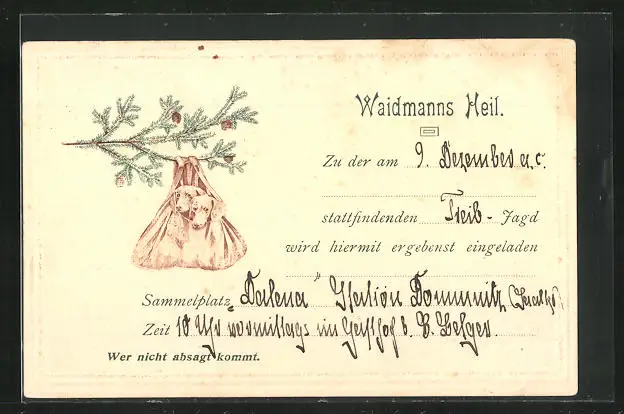 Waidmanns Heil.
Zu der am 9. Dezember a. c.
stattfindenden Treib - Jagd
wird hiermit ergebenst eingeladen
Sammelplatz Station Dommnitz
Zeit 10 Uhr vormittags im Gasthof b.
Wer nicht absagt kommt.